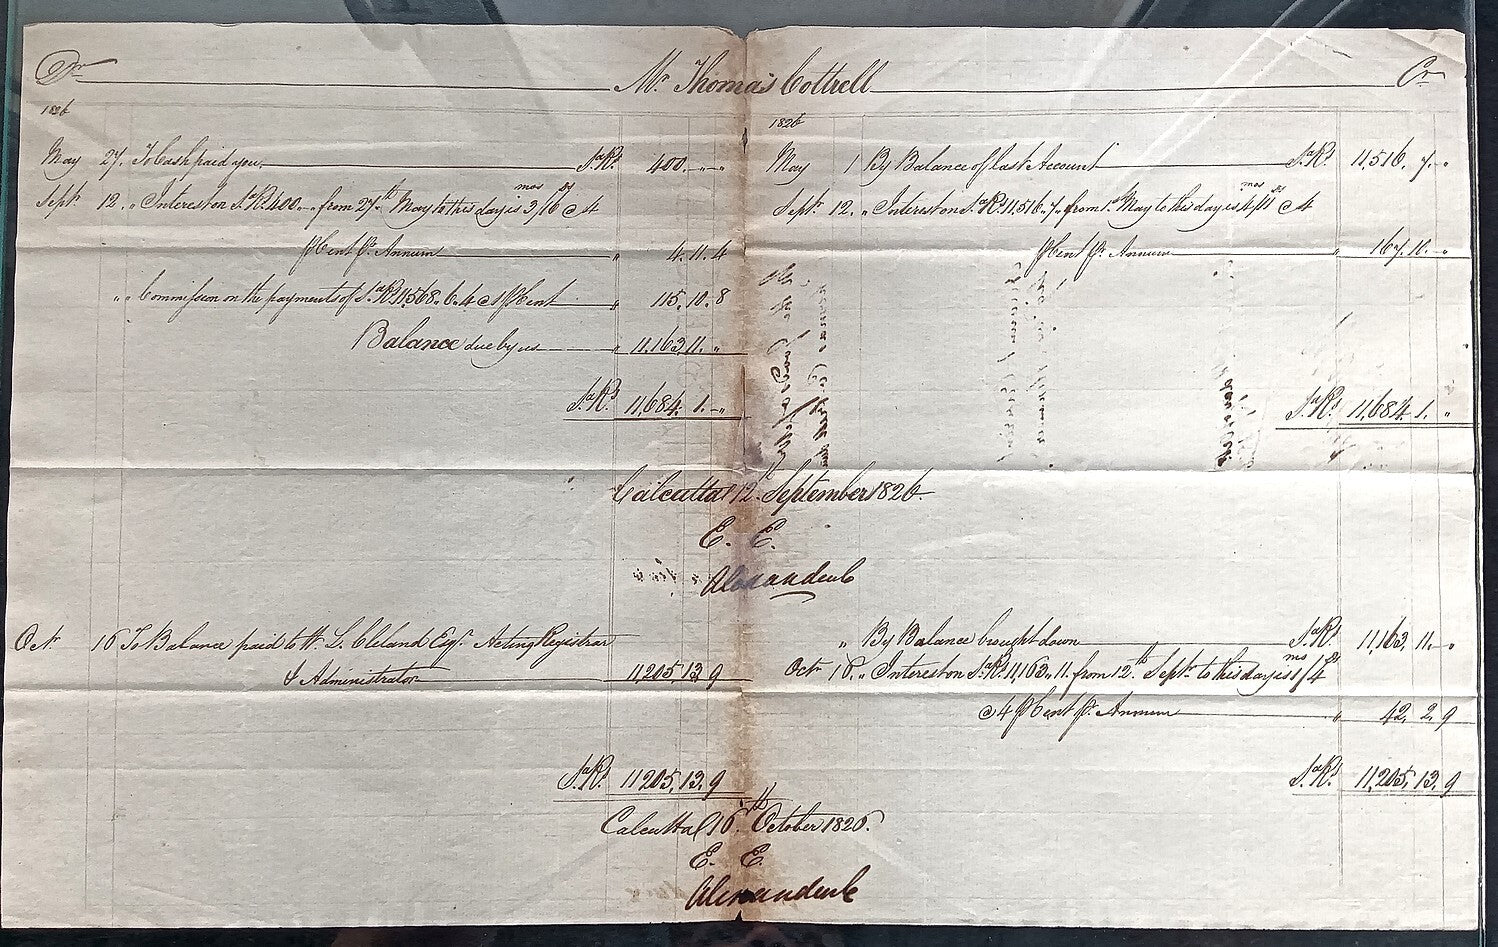 Dr Mr Thomas Cottrell Cr
1826
May 27. To Cash paid you Sa Rs 400. „ „
Sept 12. „ Interest on Sa Rs 400. „ from 27th May to this day is 3 mos /16 ds @ 4
P Cent Pr Annum „ 4. 11. 4
„ „ Commission on the payments of Sa Rs 11,568. 6. 4 @ 1 P Cent „ 115. 10. 8
Balance due by us „ 11,163. 11. „
Sa Rs 11,684. 1. „
1826
May 1 By Balance of last Account Sa Rs 11,516. 7. „
Sept 12. „ Interest on Sa Rs 11,516. 7. „ from 1st May to this day is 4 mos /11 ds @ 4
P Cent Pr Annum „ 167. 10. „
Sa Rs 11,684. 1. „
Calcutta 12th September 1826
E. E.
Alexander &c
Oct 16 To Balance paid to W. L. Cleland Esqr. Acting Registrar
& Administrator 11,205. 13. 9
Sa Rs 11205. 13. 9
„ By Balance brought down Sa Rs 11,163. 11. „
Oct 16. „ Interest on Sa Rs 11,163. 11. from 12th Sept to this day is 1 ms /4 ds
@ 4 P Cent Pr Annum „ 42. 2. 9
Sa Rs 11,205. 13. 9
Calcutta 16th October 1826.
E. E.
Alexander &c